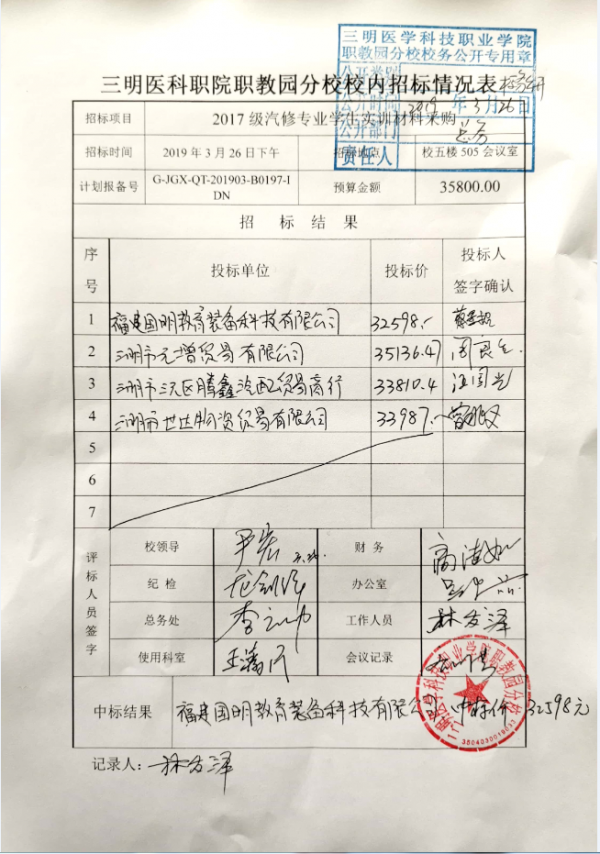 三明医学科技职业学院
职教园分校校务公开专用章
三明医科职院职教园分校校内招标情况表
公开类别
公开时间 2019年3月26日
公开部门 总务
责任人
招标项目 2017级汽修专业学生实训材料采购
招标时间 2019年3月26日下午 招标地点 校五楼505会议室
计划报备号 G-JGX-QT-201903-B0197-IDN 预算金额 35800.00
招 标 结 果
序号 投标单位 投标价 投标人签字确认
1 福建国明教育装备科技有限公司 32598.-
2 三明市元增贸易有限公司 35136.47 周良生
3 三明市三元区腾鑫汽配贸易商行 33810.4
4 三明市世达物资贸易有限公司 33987.-
5
6
7
评标人员签字
校领导 财务
纪检 办公室
总务处 工作人员 林发泽
使用科室 会议记录
三明医学科技职业学院职教园分校
中标结果 福建国明教育装备科技有限公司 中标价 32598元
记录人：林发泽